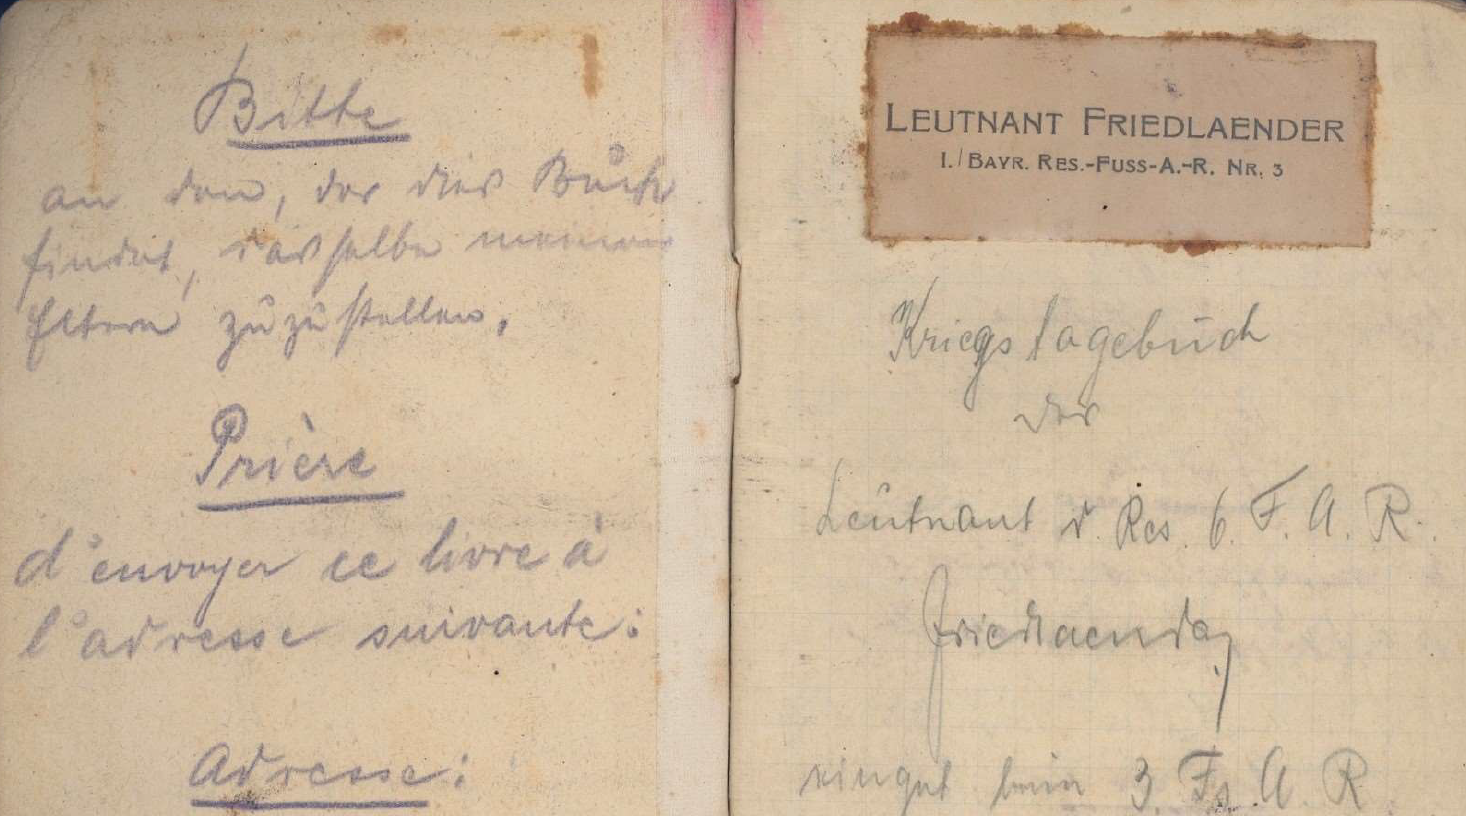 Bitte
an den, der dies Buch
findet, dasselbe meinen
Eltern zuzustellen.
Prière
d'envoyer ce livre à
l'adresse suivante:
Adresse:
LEUTNANT FRIEDLAENDER
I./BAYR. RES.-FUSS-A.-R. NR. 3
Kriegstagebuch
des
Leutnant d. Res. 6. F. A. R.
Friedlaender
beim 3. Fs. A. R.